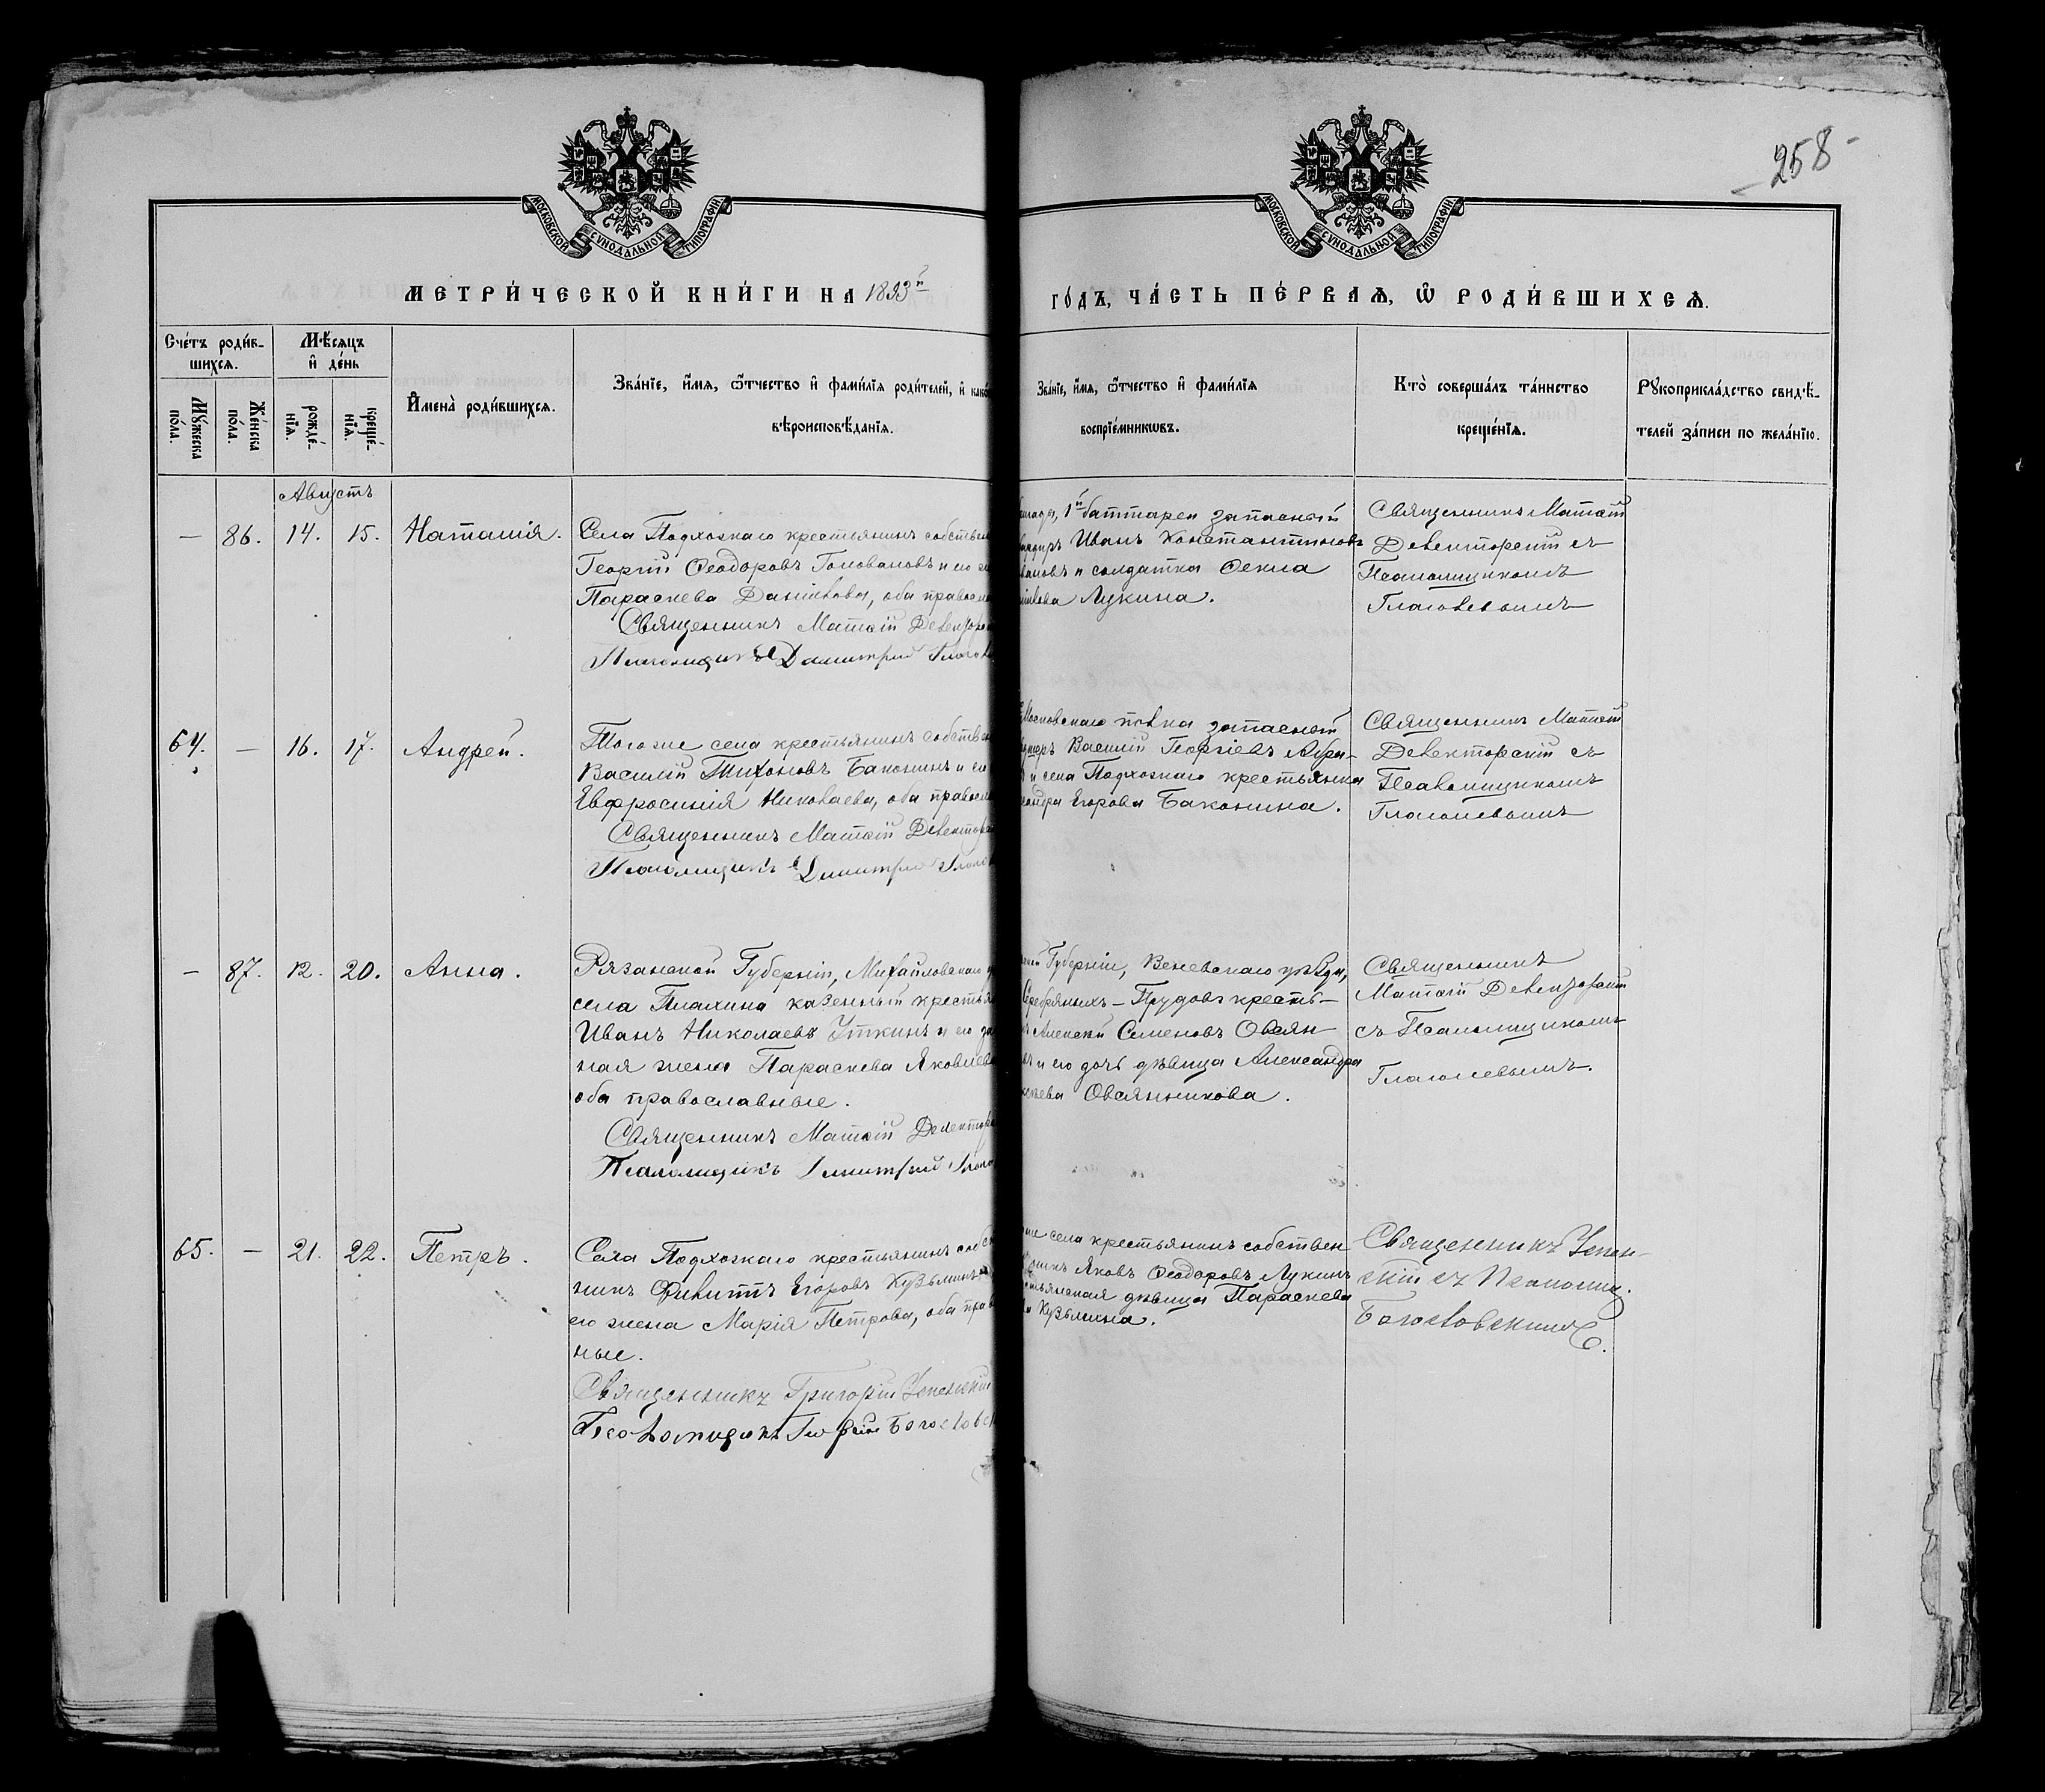 258
МОСКОВСКОЙ СУНОДАЛЬНОЙ ТИПОГРАФІИ
МОСКОВСКОЙ СУНОДАЛЬНОЙ ТИПОГРАФІИ
МЕТРИ́ЧЕСКОЙ КНИ́ГИ НА 1893й
ГО́ДЪ, ЧА́СТЬ ПЕ́РВАѦ, Ѿ РОДИ́ВШИХСѦ.
Сче́тъ роди́в-
шихсѧ.
Мꙋ́жеска
по́ла.
Же́нска
по́ла.
Мѣ́сѧцъ
и҆ де́нь
рожде́-
нїѧ.
креще́-
нїѧ.
И҆мена̀ роди́вшихсѧ.
Зва́нїе, и҆́мѧ, ѻ҆́тчество и҆ фами́лїѧ роди́телей, и҆ како́
вѣроисповѣ́данїѧ.
Зва́нїе, и҆́мѧ, ѻ҆́тчество и҆ фами́лїѧ
воспрїе́мникѡвъ.
Кто̀ соверша́лъ та́инство
креще́нїѧ.
Рꙋкоприкла́дство свидѣ́-
телей за́писи по жела́нїю.
Августъ
— 86. 14. 15. Наталія.
Села Подхожаго крестьянинъ собствен
Георгій Ѳеодоровъ Головановъ и его
Параскева Данилова, оба правосла
Священникъ Матѳій Девекторс
Псаломщикъ Димитрій Глагол
1й баттареи запасной
Иванъ Константиновъ
вановъ и солдатка Ѳекла
Лукина.
Священникъ Матѳій
Девекторскій съ
Псаломщикомъ
Глаголевымъ
64. — 16. 17. Андрей.
Того же села крестьянинъ собствен
Василій Тихоновъ Баконинъ и его
Евфросинія Николаева, оба правосла
Священникъ Матѳій Девекторс
Псаломщикъ Димитрій Глаго
Московскаго полка запасной
Василій Георгіевъ Абра-
и села Подхожаго крестьянка
сандра Егорова Баконина.
Священникъ Матѳій
Девекторскій съ
Псаломщикомъ
Глаголевымъ
— 87. 12. 20. Анна.
Рязанской Губерніи, Михайловскаго у
села Плахина казенный крестья
Иванъ Николаевъ Уткинъ и его за
ная жена Параскева Яковлева
оба православные.
Священникъ Матѳій Девекторс
Псаломщикъ Димитрій Глаго
Губерніи, Веневскаго уѣзда,
Серебряныхъ-Прудовъ кресть-
Алексѣй Семеновъ Овсян
и его дочь дѣвица Александра
ксѣева Овсянникова.
Священникъ
Матѳій Девекторскій
съ Псаломщикомъ
Глаголевымъ.
65. — 21. 22. Петръ.
Села Подхожаго крестьянинъ собст
никъ Филиппъ Егоровъ Кузьминъ и
его жена Марія Петрова, оба прав
ные.
Священникъ Григорій Успенскій
Псаломщикъ Георгій Богословс
же села крестьянинъ собствен
никъ Яковъ Ѳеодоровъ Лукинъ
стьянская дѣвица Параскева
Кузьмина.
Священникъ Успен-
скій съ Псаломщ.
Богословскимъ.